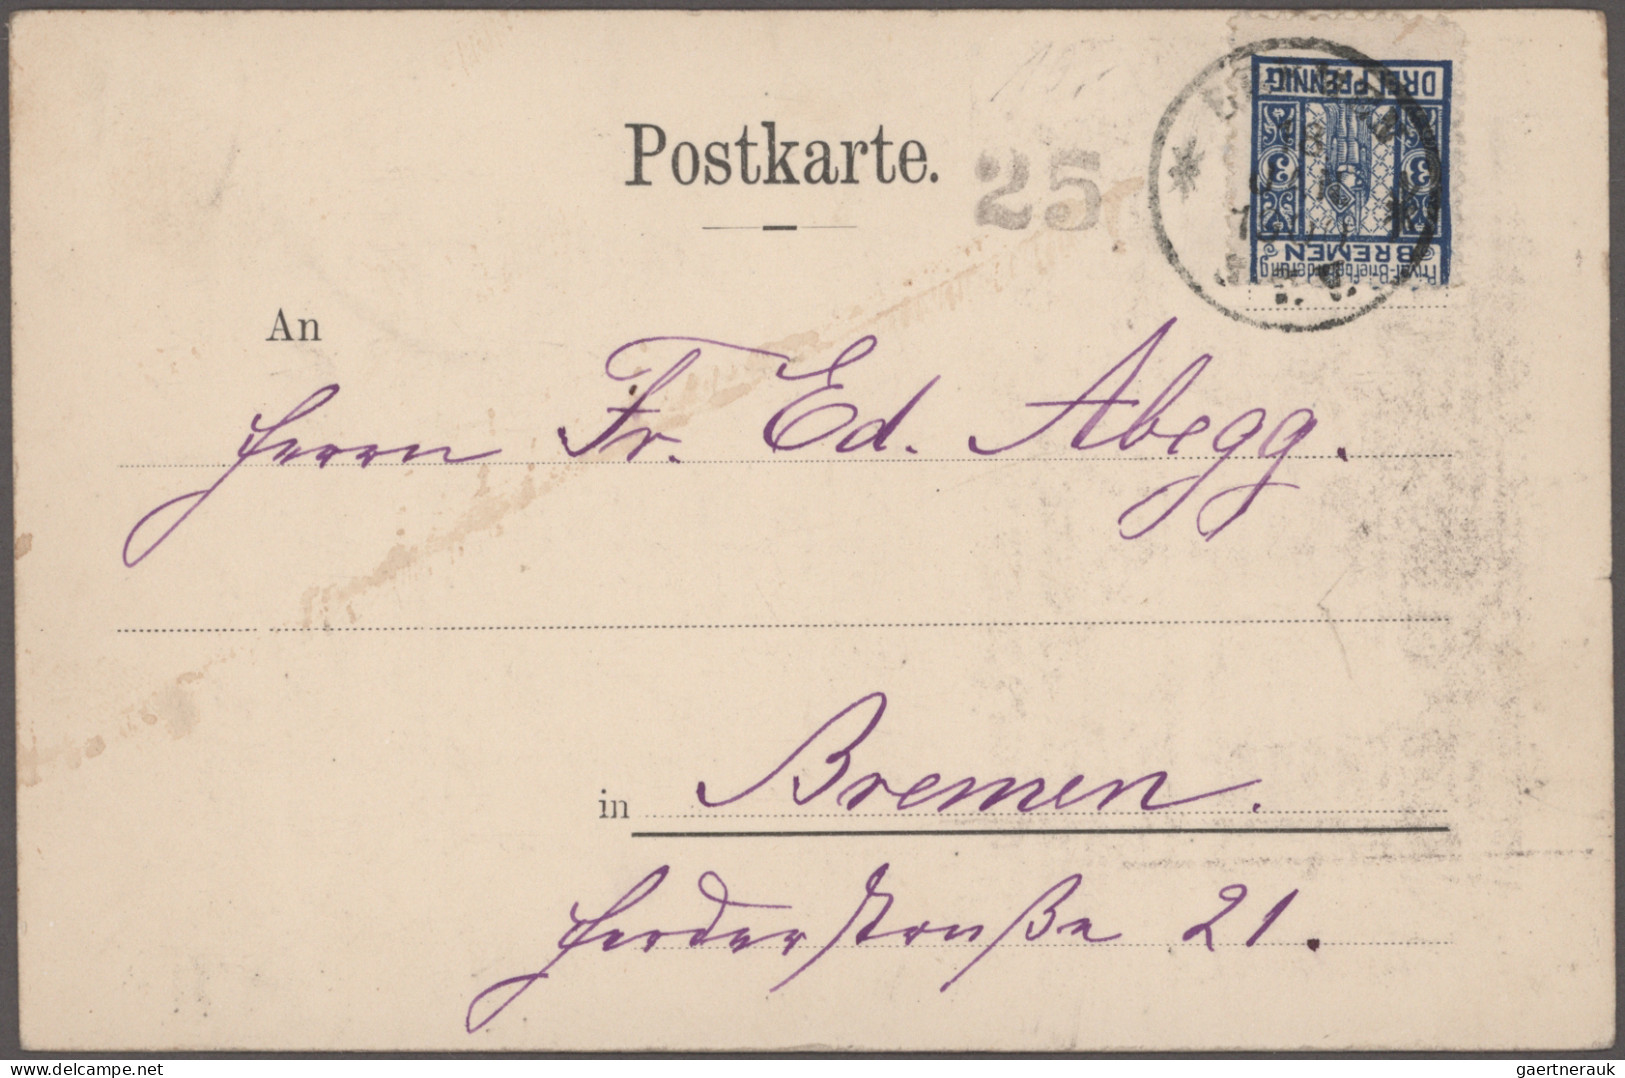 Postkarte.
25
DREI PFENNIG
3 3
BREMEN
Privat-Briefbeförderung
An
Herrn Fr. Ed. Abegg.
in Bremen.
Herderstraße 21.
delcampe.net
gaertnerauk